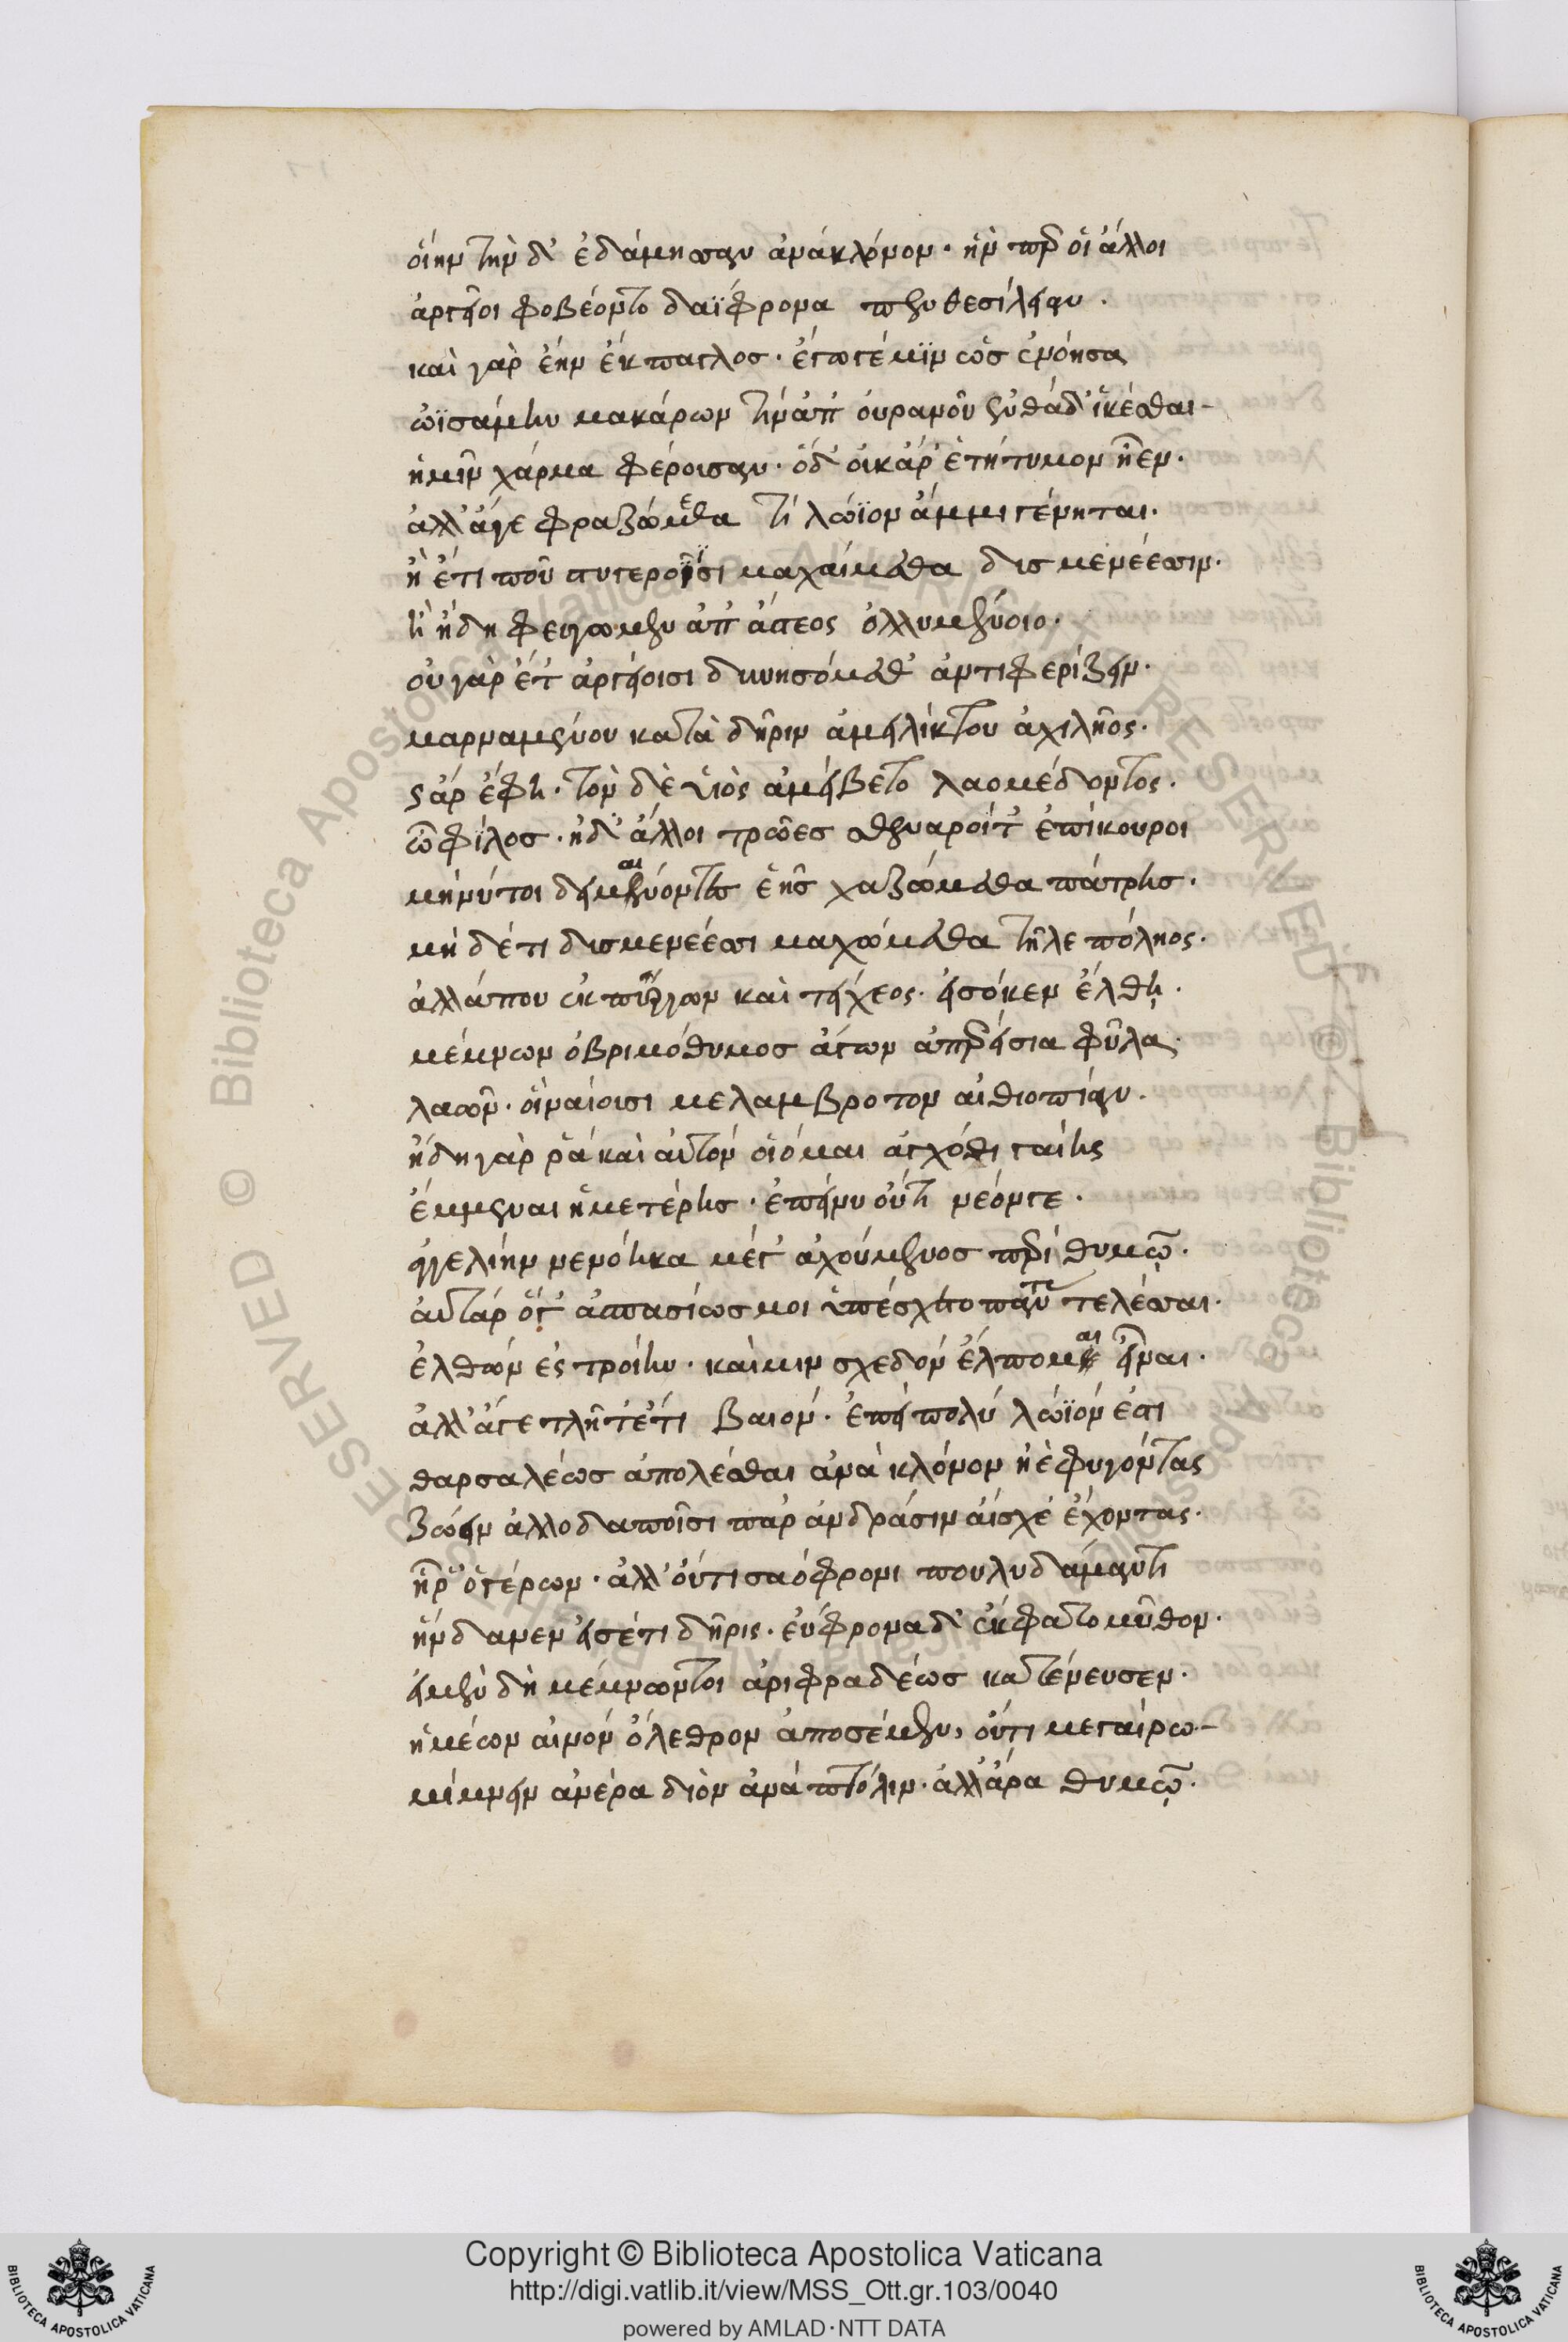 οἵην τὴν δ' ἐδάμησσαν ἀνάκλόνον· ἣν περ οἱ ἄλλοι
ἀργεῖοι φοβέοντο δαΐφρονα πενθεσίλειαν.
καὶ γὰρ ἔην ἔκπαγλος· ἔγωγέ μϊν ὡς ἐνόησα
ὠϊσάμην μακάρων τίν' ἀπ' οὐρανοῦ ἐνθάδ' ἱκέσθαι-
ἡμῖν χάρμα φέροισαν· ὅδ' οὐκ ἄρ' ἐτήτυμον ἦεν.
ἀλλ' ἄγε φραζώμεθα τί λώϊον ἄμμι γένηται.
ἢ ἔτι ποῦ στυγεροῖσι μαχαίμεσθα δυσμενέεσσιν.
ἢ ἤδη φεύγωμεν ἀπ' ἄστεος ὀλλυμένοιο.
οὐ γὰρ ἔτ' ἀργείοισι δυνησόμεσθ' ἀντιφερίζειν.
μαρναμένου κατὰ δῆριν ἀμειλίκτου ἀχιλῆος.
ς ἄρ ἔφη· τὸν δὲ υἱὸς ἀμείβετο λαομέδοντος.
ὦ φίλος· ἠδ' ἄλλοι τρῶες σθεναροίτ' ἐπίκουροι
μήνύτοι δειμαίνοντες ἑῆς χαζώμεσθα πάτρης.
μὴ δέτι δυσμενέεσσι μαχώμεσθα τῆλε πόληος.
ἀλλάπου ἐκ πύργων καὶ τείχεος· εἰσόκεν ἔλθῃ.
μέμνων ὀβριμόθυμος ἄγων ἀπειρέσια φῦλα
λαῶν· οἳναίουσι μελαμβροτον αἰθιοπίαν.
ἤδη γὰρ ῥά καὶ αὐτόν οἴόμαι ἀγχόθι γαίης
ἔμμεναι ἡμετέρης· ἐπείνυ οὔτι νέόνγε.
ἀγγελίην νενόηκα μέγ' ἀχούμενος περί θυμῷ.
αὐτάρ ὅγ' ἀσπασίως μοι ὑπέσχετο πάντα τελέσσαι.
ἐλθών ἐς τροίην· καίμιν σχεδὸν ἔλπομαι εἶναι.
ἀλλ' ἄγε τλῆτ' ἔτι βαιόν· ἐπεί πολύ λώϊόν ἐστι
θαρσαλέως ἀπολέσθαι ἀνὰ κλόνον ἠὲ φυγόντας
ζώειν ἀλλοδαποῖσι παρ ἀνδράσιν αἴσχε' ἔχοντας.
ἦρ' ὁγέρων· ἀλλ' οὔτι σαόφρονι πουλυδάμαντι
ἥνδαμεν εἰσέτι δῆρις· εὔφρονα δ' ἔκφατο μῦθον.
εἰμὲν δὴ μέμνωντοι ἀριφραδέως κατένευσεν.
ἡμέων αἰνόν ὄλεθρον ἀποσέμεν, οὔτι μεγαίρω-
μίμνειν ἀνέρα δῖον ἀνά πτόλιν· ἀλλ' ἄρα θυμῷ.
Copyright © Biblioteca Apostolica Vaticana
http://digi.vatlib.it/view/MSS_Ott.gr.103/0040
powered by AMLAD·NTT DATA